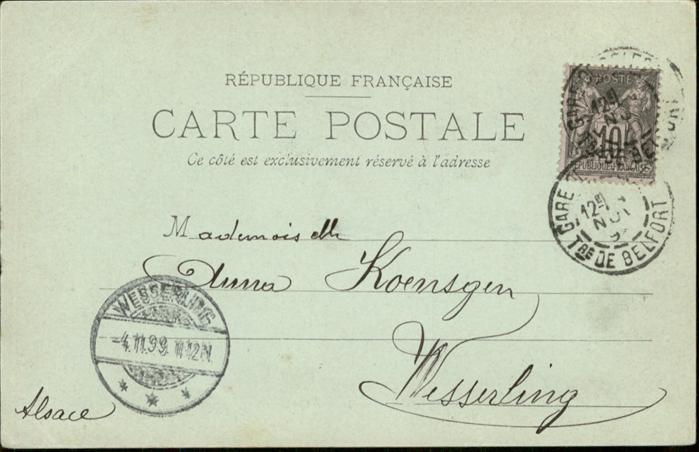 RÉPUBLIQUE FRANÇAISE
CARTE POSTALE
Ce côté est exclusivement réservé à l'adresse
POSTE
10
RÉPUBLIQUE FRANÇAISE
GARE DE BELFORT
GARE
12
NOV
TRE DE BELFORT
Mademoiselle
Anna Koensgen
Wesserling
WESSERLING
-4.11.99. 11-12N.
Alsace